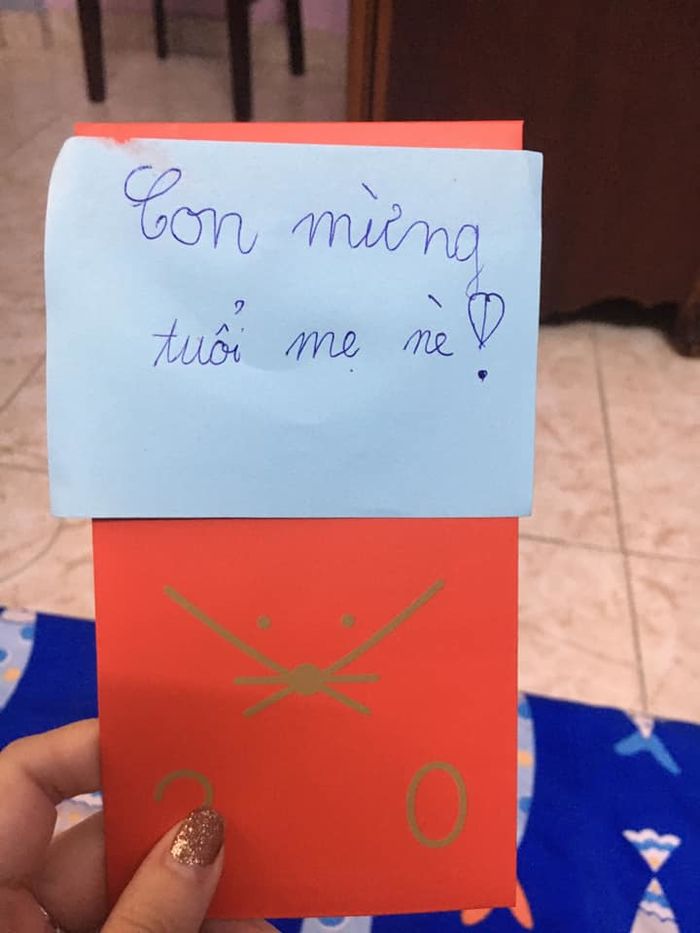 Con mừng
tuổi mẹ nè!
2 0